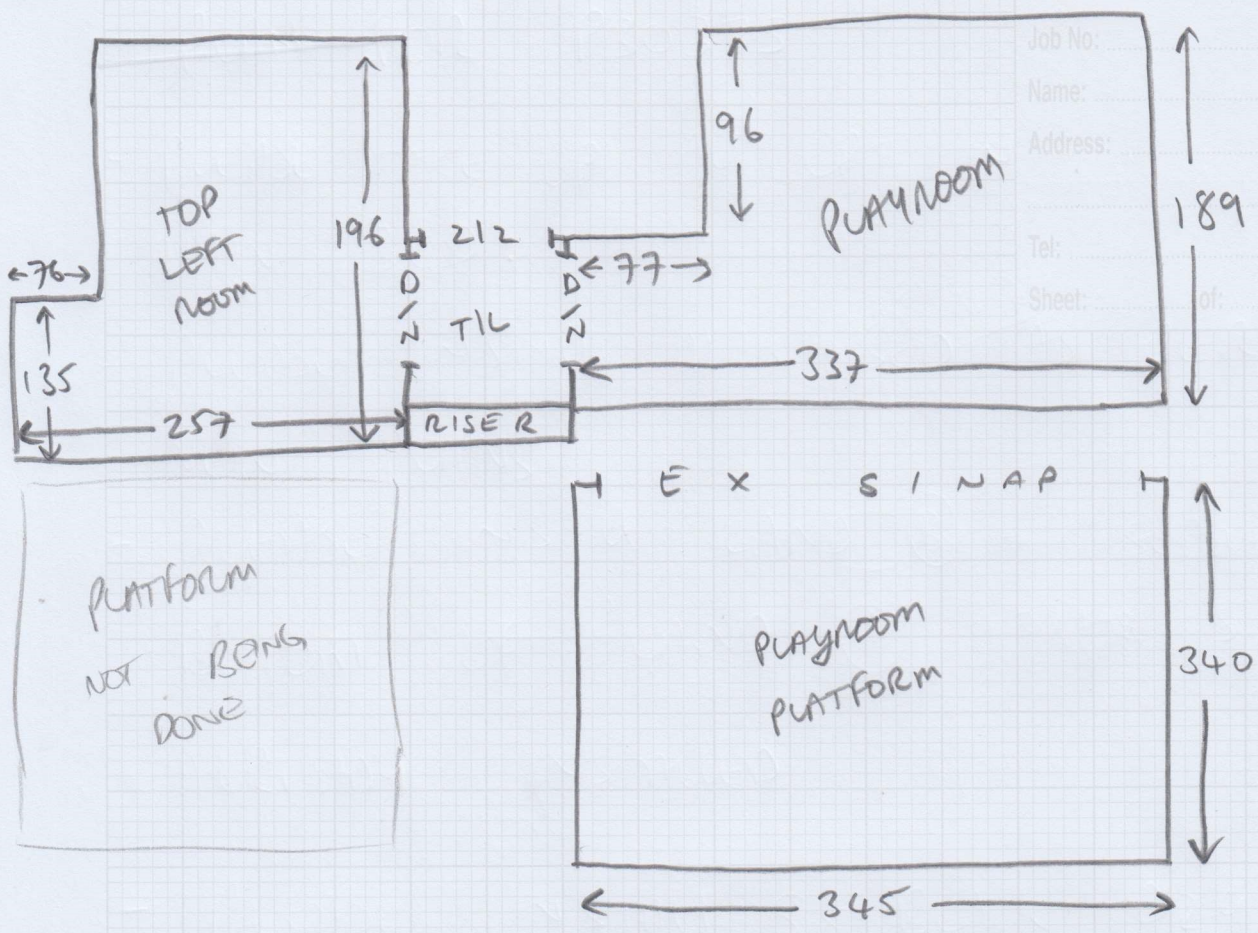 Job No:
Name:
Address:
Tel:
Sheet: of:
96
TOP
LEFT
ROOM
196
212
PLAYROOM
189
76
77
D/N
T/L
D/N
135
337
257
RISER
EX SINAP
PLATFORM
NOT BEING
DONE
PLAYROOM
PLATFORM
340
345